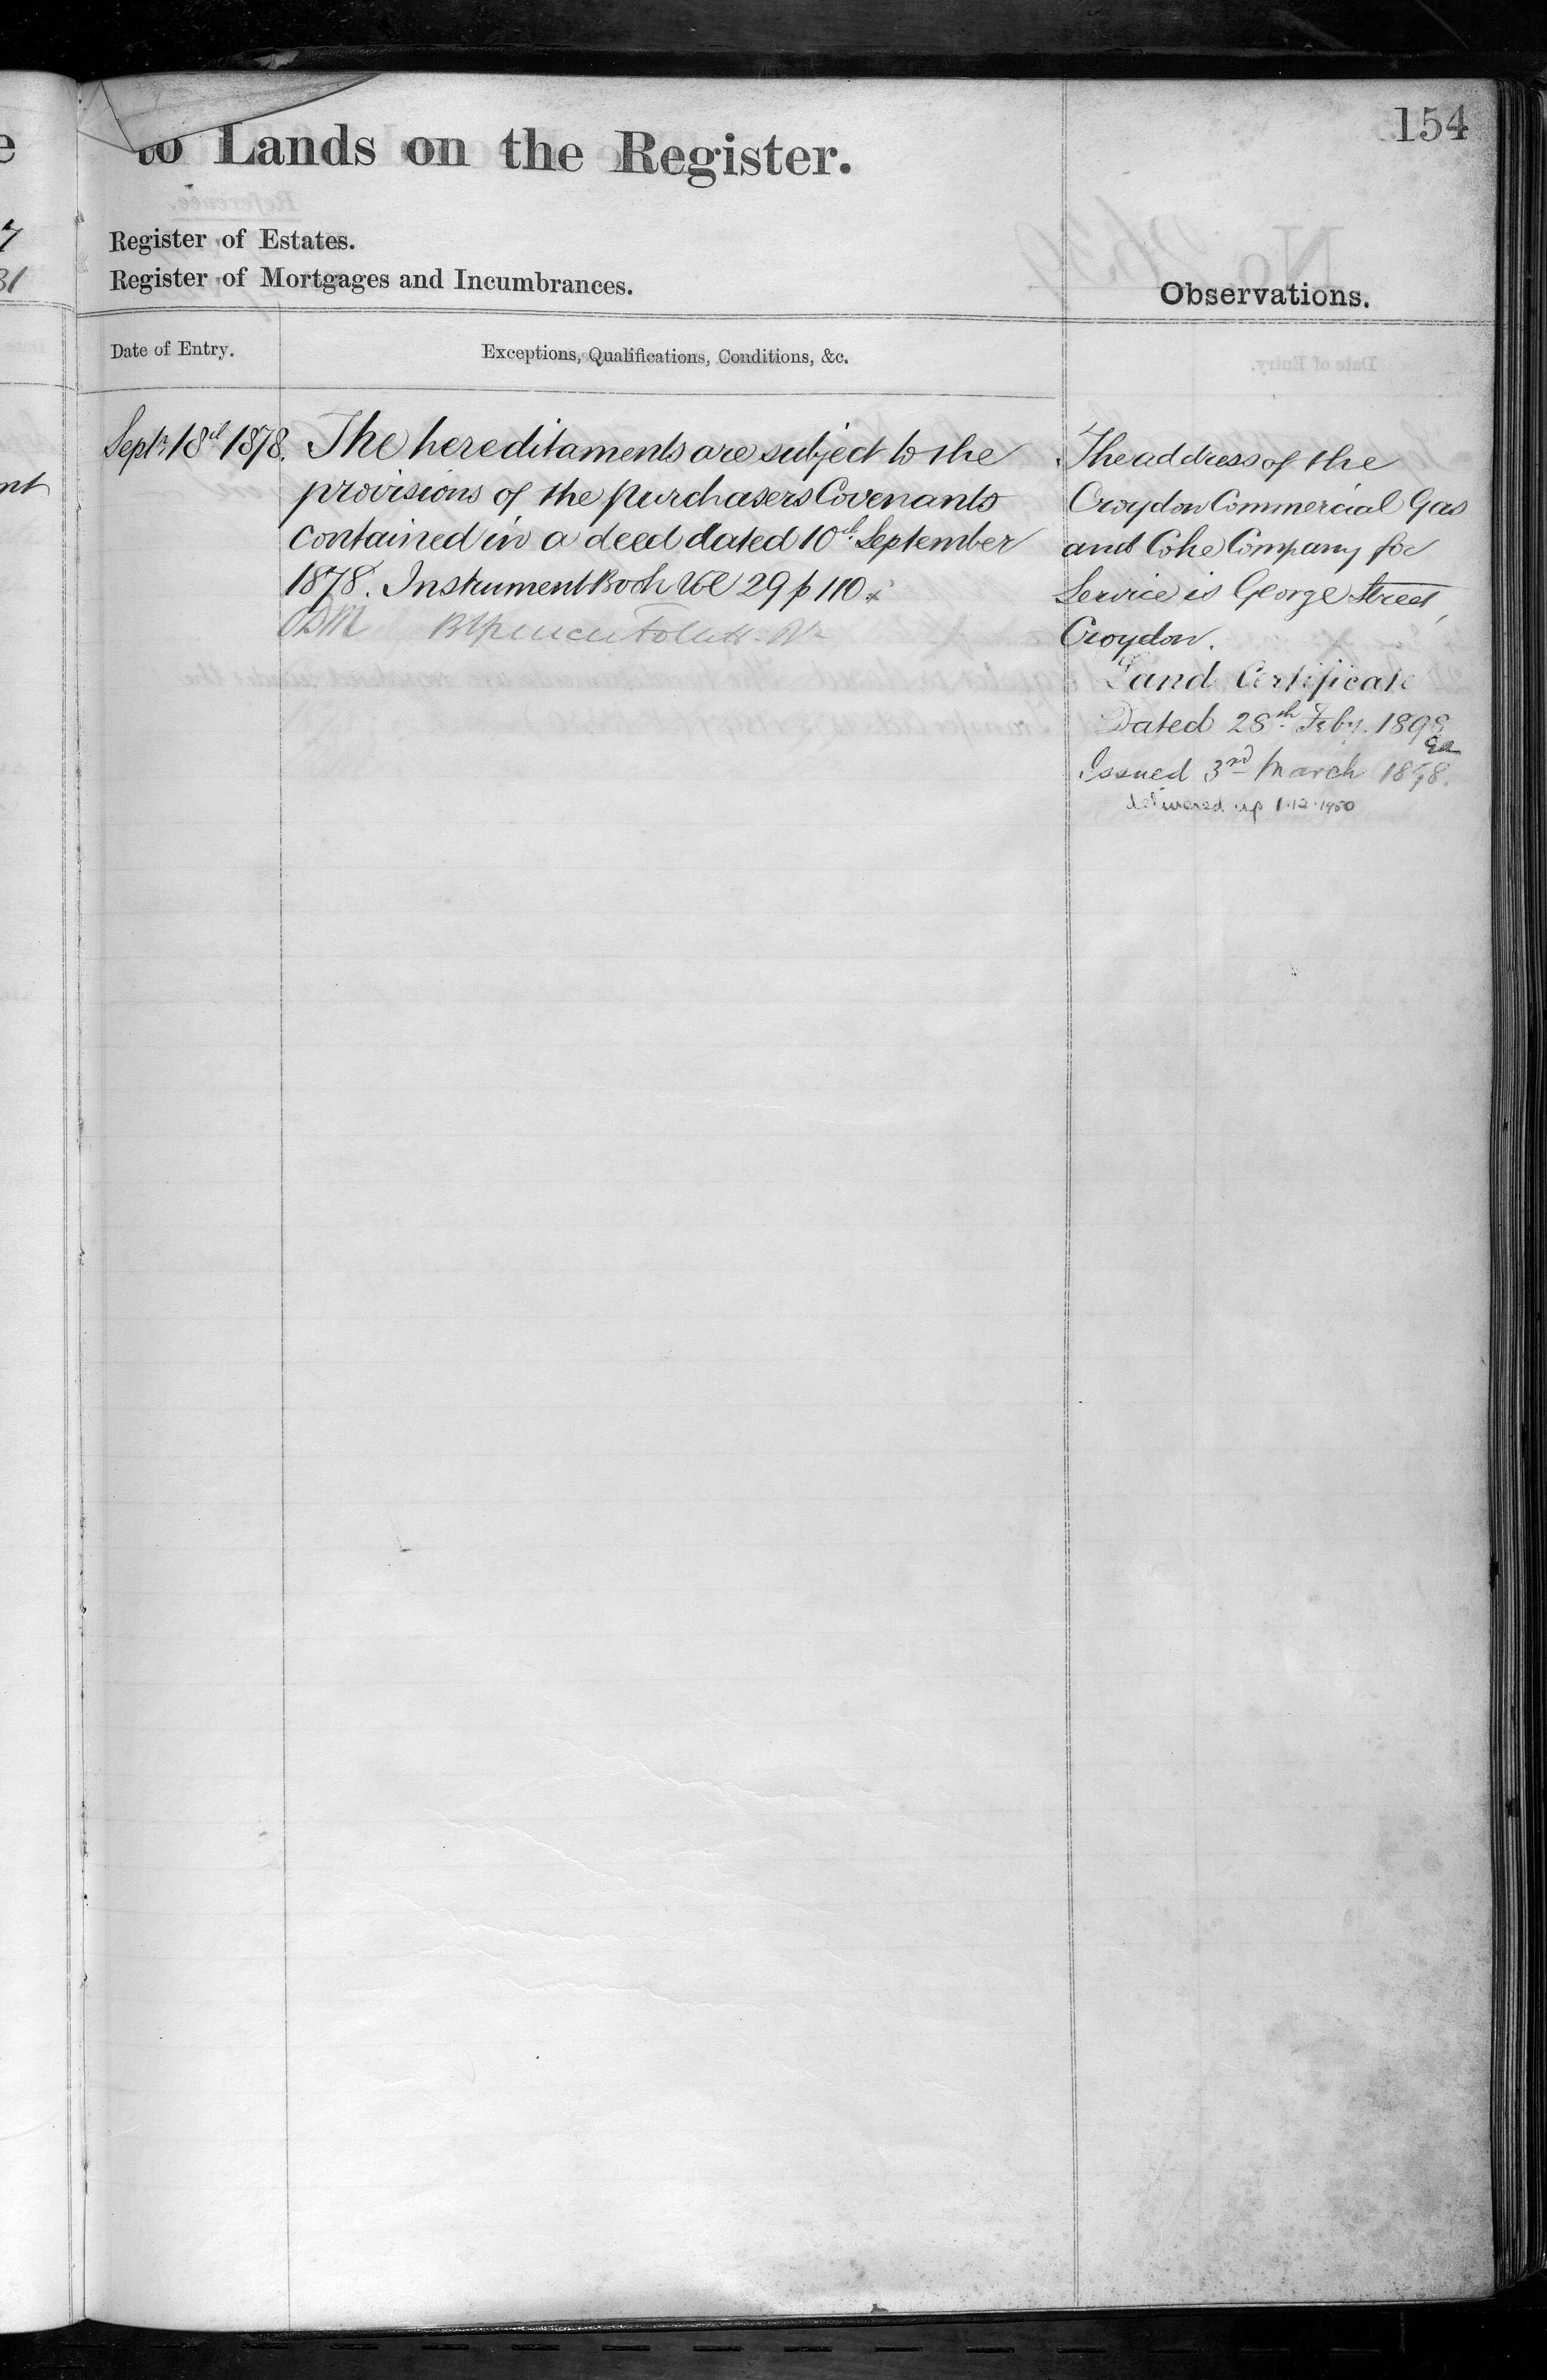 154
to Lands on the Register.
Register of Estates.
Register of Mortgages and Incumbrances.
Observations.
Date of Entry.
Exceptions, Qualifications, Conditions, &c.
Septr 18th 1878. The hereditaments are subject to the
provisions of the purchasers Covenants
contained in a deed dated 10th September
1878. Instrument Book Vol 29 p 110.
The address of the
Croydon Commercial Gas
and Coke Company for
Service is George Street,
Croydon.
Land Certificate
Dated 28th Feby. 1898
Issued 3rd March 1898.
delivered up 1.12.1950